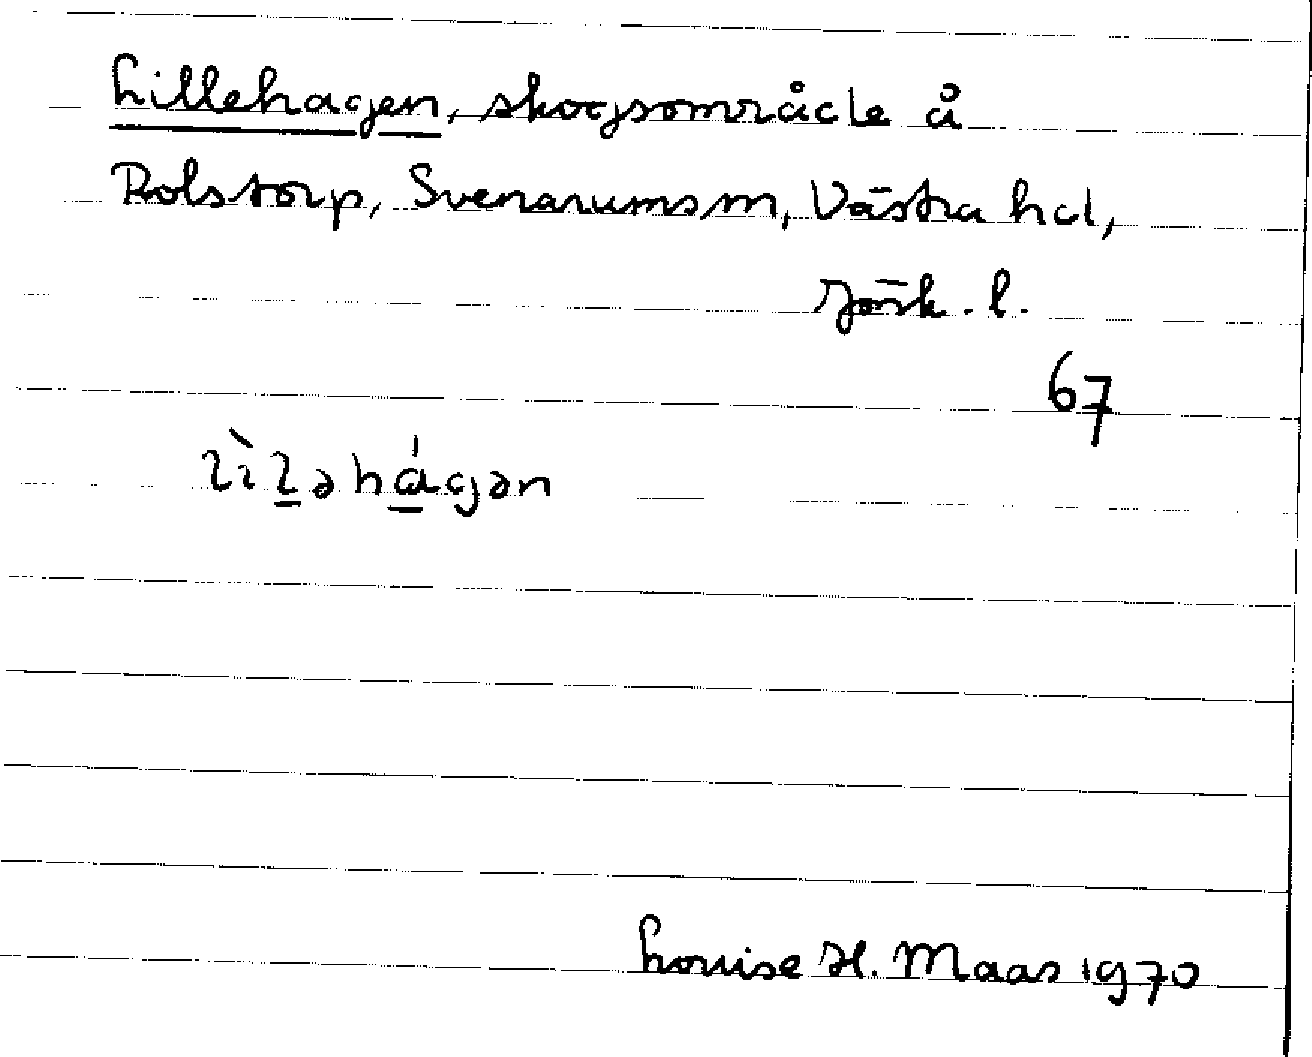 Lillehagen, skogsområde å
Rolstorp, Svenarums sn, Västra hd,
Jönk. l.
67
lìl̲əhá̲gən
Louise H. Maas 1970